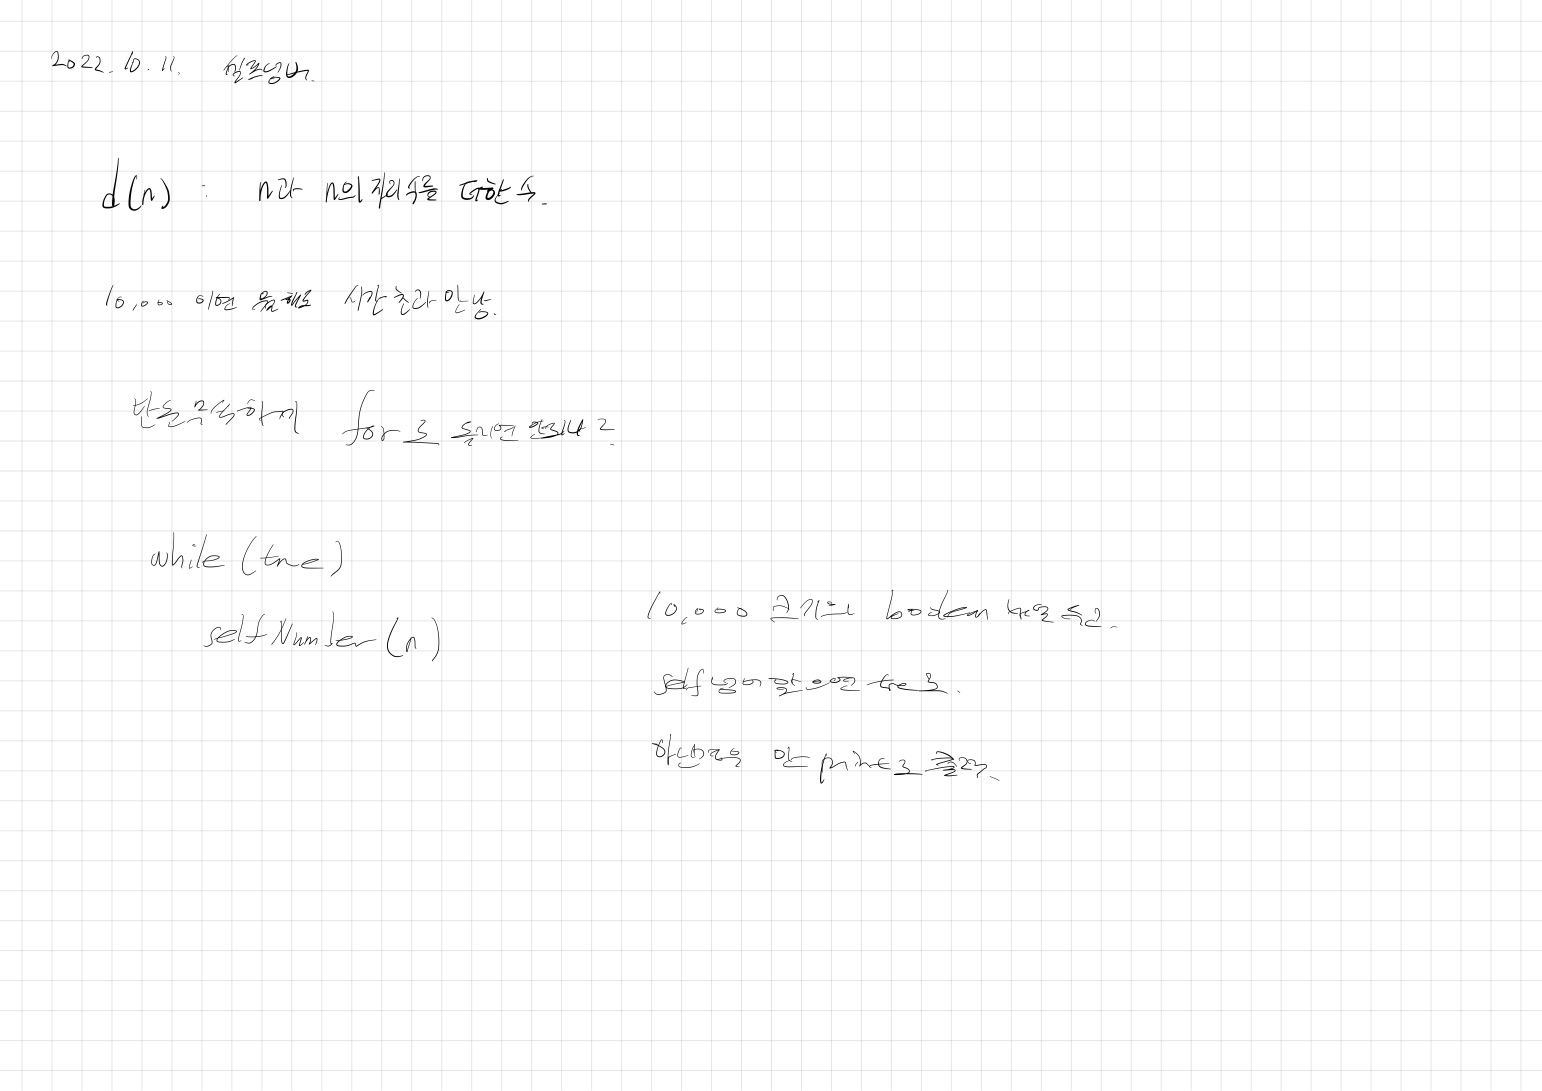 2022. 10. 11. 셀프넘버.
d(n) : n과 n의 자리수를 더한 수.
10,000 이면 해도 시간초과 안남.
단순무식하게 for로 돌리면 안되나?
while (true)
selfNumber(n)
10,000 크기의 boolean 배열 두고.
self넘버 맞으면 true로.
아닌것은 print로 출력.